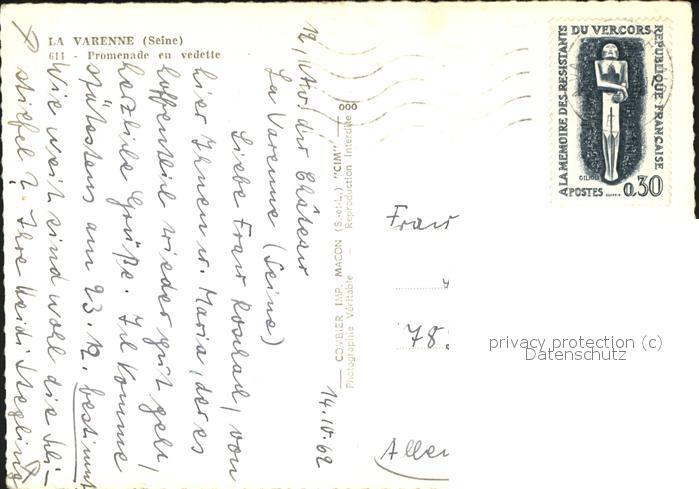 LA VARENNE (Seine)
611 - Promenade en vedette
12, Av. du Château
La Varenne (Seine)
14.10.62
Liebe Frau Roschad, von
hier Ihnen u. Maria, der es
hoffentlich wieder gut geht,
herzliche Grüße. Ich komme
spätestens am 23.12. bestimmt
Wie weit sind wohl die Ski-
stiefel? Ihre Heidi
COMBIER IMP. MACON (S.-et-L.) "CIM"
Photographie Véritable - Reproduction Interdite
A LA MEMOIRE DES RESISTANTS DU VERCORS
REPUBLIQUE FRANÇAISE
POSTES 0,30
Frau
78
Allem
privacy protection (c)
Datenschutz